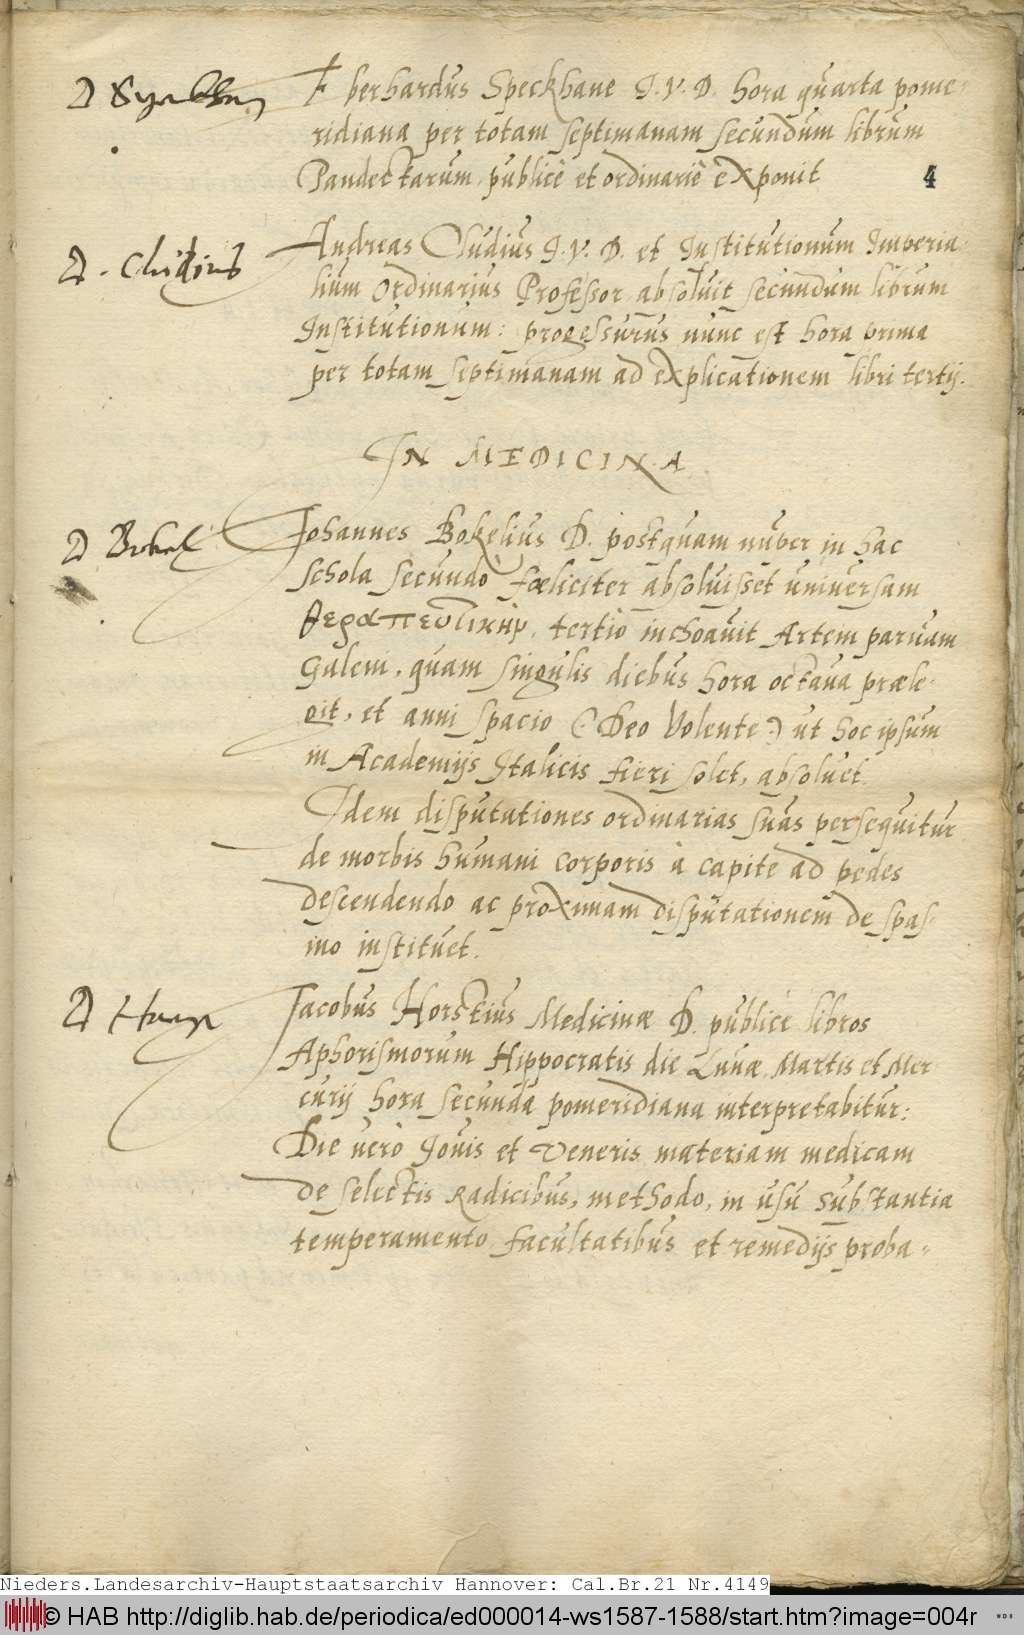 D Speckhan
Eberhardus Speckhane J.V.D. hora quarta pome-
ridiana per totam septimanam secundum librum
Pandectarum publicè et ordinariè exponit
4
D. Cludius
Andreas Cludius J.V.D. et Institutionum Imperia-
lium Ordinarius Professor absoluit secundum librum
Institutionum: progressurus nunc est hora prima
per totam septimanam ad explicationem libri tertij.
IN MEDICINA
D Bokel
Johannes Bokelius D. postquam nuper in hac
schola secundo fœliciter absoluisset universam
θεραπευτικὴν, tertio inchoavit Artem parvam
Galeni, quam singulis diebus hora octava præle-
git, et anni spacio (: Deo Volente :) ut hoc ipsum
in Academijs Italicis fieri solet, absoluet.
Idem disputationes ordinarias suas persequitur
de morbis humani corporis à capite ad pedes
descendendo ac proximam disputationem de spas-
mo instituet.
D Horst
Jacobus Horstius Medicinæ D. publicè libros
Aphorismorum Hippocratis die Lunæ Martis et Mer-
curij hora secunda pomeridiana interpretabitur:
Die verò Jovis et Veneris materiam medicam
de selectis Radicibus, methodo, in usu substantia
temperamento facultatibus et remedijs proba-
Nieders.Landesarchiv-Hauptstaatsarchiv Hannover: Cal.Br.21 Nr.4149
© HAB http://diglib.hab.de/periodica/ed000014-ws1587-1588/start.htm?image=004r